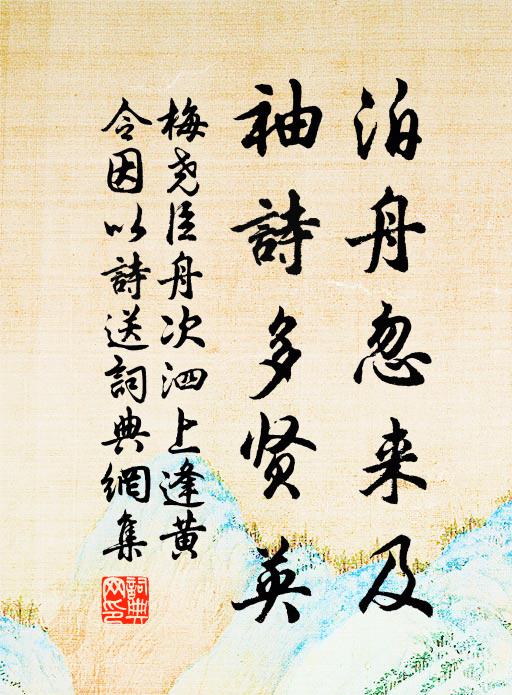 泊舟忽来及
袖詩多贤英
梅尧臣舟次泗上逢黄
令因以詩送詞典網集
詞典
网印